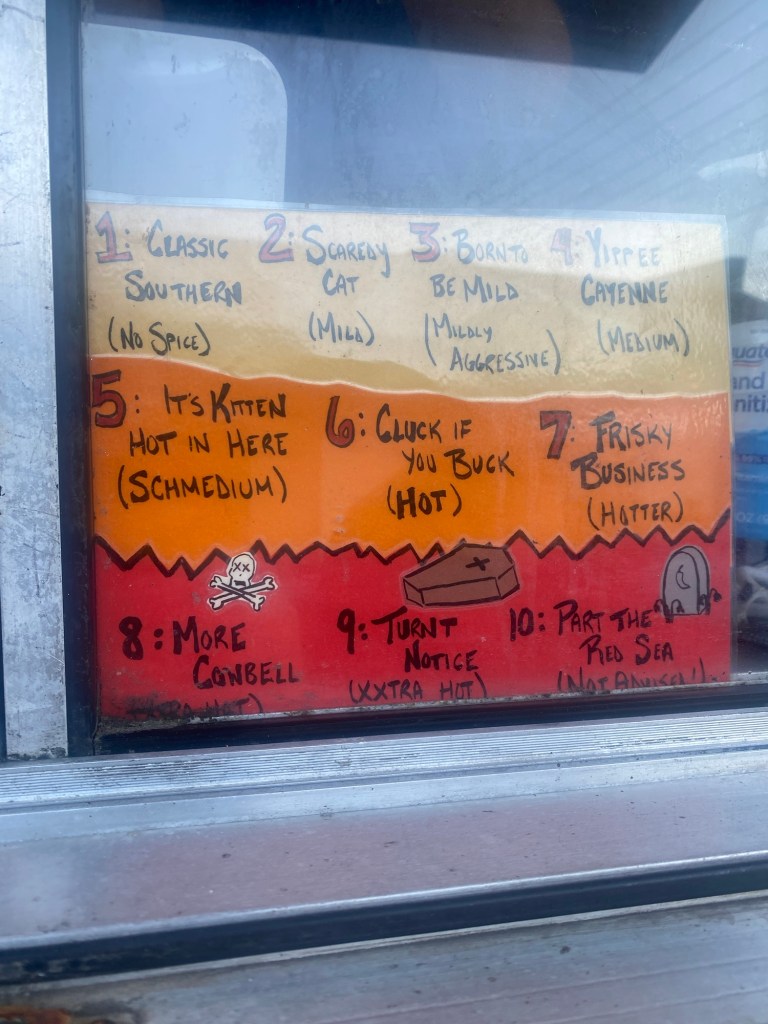 1: CLASSIC SOUTHERN
(NO SPICE)
2: SCAREDY CAT
(MILD)
3: BORN TO BE MILD
(MILDLY AGGRESSIVE)
4: YIPPEE CAYENNE
(MEDIUM)
5: IT'S KITTEN HOT IN HERE
(SCHMEDIUM)
6: CLUCK IF YOU BUCK
(HOT)
7: FRISKY BUSINESS
(HOTTER)
8: MORE COWBELL
(XTRA HOT)
9: TURNT NOTICE
(XXTRA HOT)
10: PART THE RED SEA
(NOT ADVISED!)
and